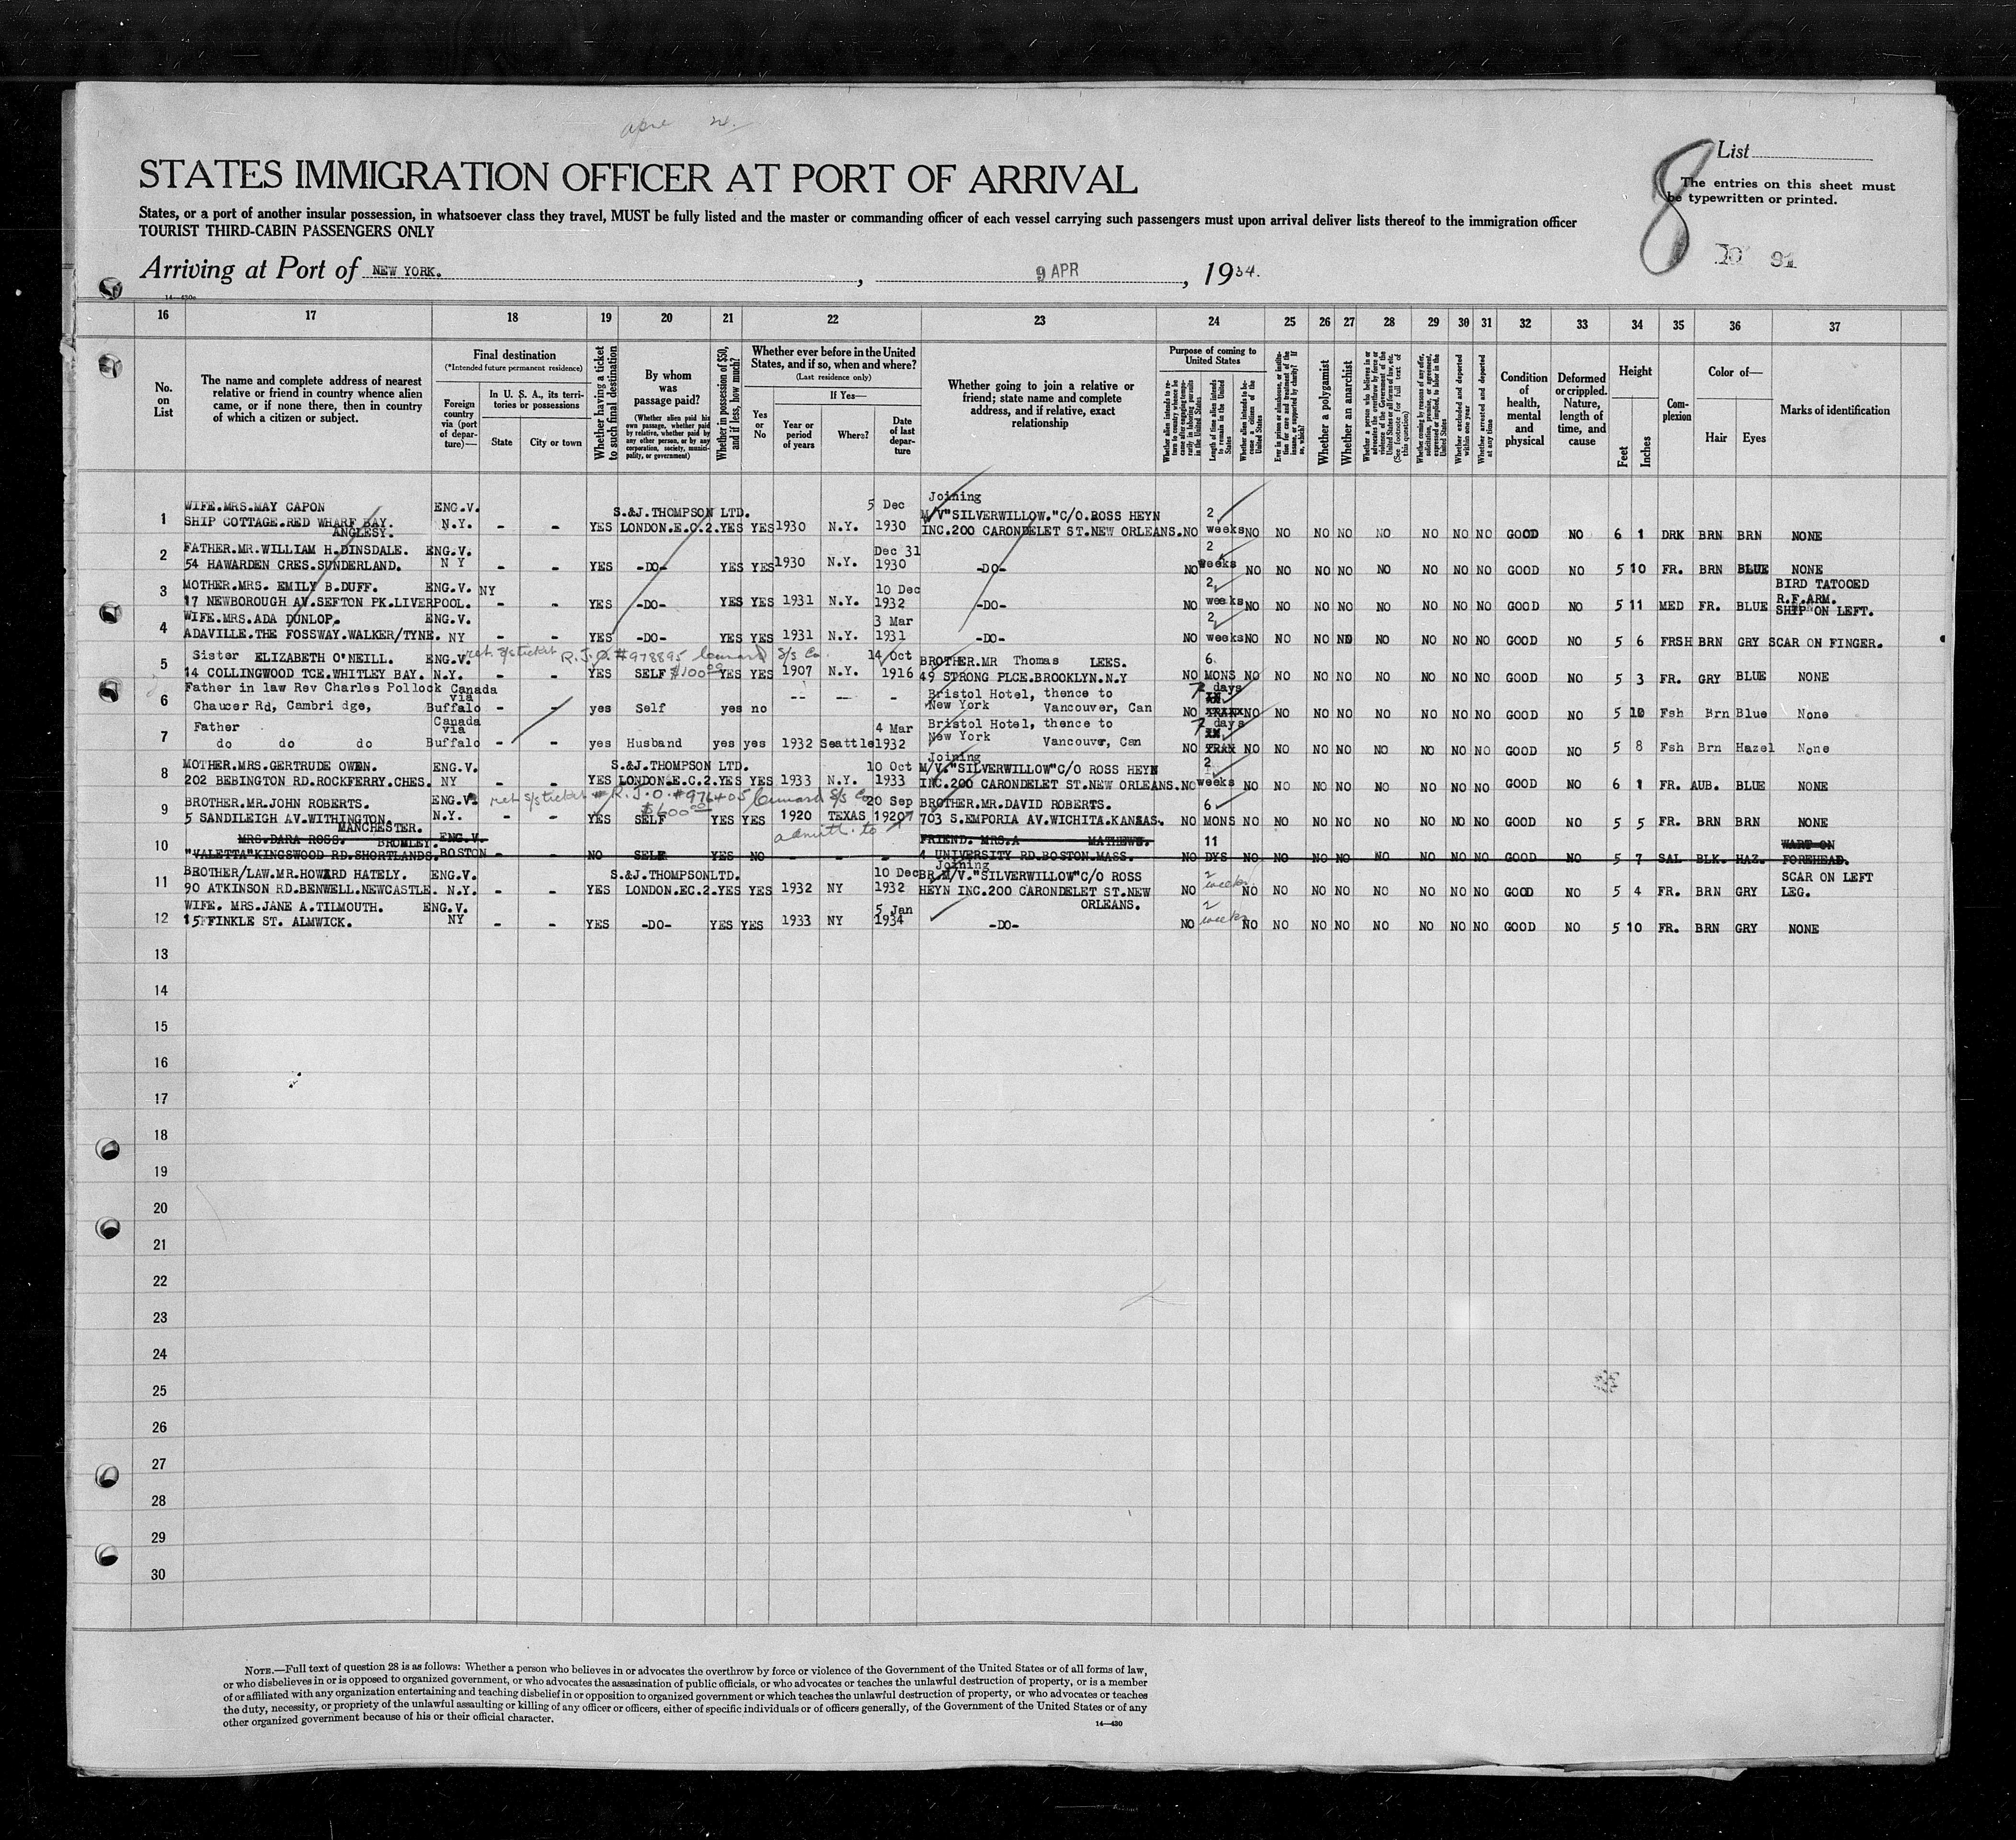 STATES IMMIGRATION OFFICER AT PORT OF ARRIVAL
List
The entries on this sheet must
be typewritten or printed.
8
States, or a port of another insular possession, in whatsoever class they travel, MUST be fully listed and the master or commanding officer of each vessel carrying such passengers must upon arrival deliver lists thereof to the immigration officer
TOURIST THIRD-CABIN PASSENGERS ONLY
Arriving at Port of NEW YORK. , 9 APR , 1934.
16 17 18 19 20 21 22 23 24 25 26 27 28 29 30 31 32 33 34 35 36 37
No. on List
The name and complete address of nearest relative or friend in country whence alien came, or if none there, then in country of which a citizen or subject.
Final destination
(*Intended future permanent residence)
Foreign country via (port of departure)—
In U. S. A., its territories or possessions
State
City or town
Whether having a ticket to such final destination
By whom was passage paid?
(Whether alien paid his own passage, whether paid by relative, whether paid by any other person, or by any corporation, society, municipality, or government)
Whether in possession of $50, and if less, how much?
Whether ever before in the United States, and if so, when and where?
(Last residence only)
Yes or No
If Yes—
Year or period of years
Where?
Date of last departure
Whether going to join a relative or friend; state name and complete address, and if relative, exact relationship
Purpose of coming to United States
Whether alien intends to return to country whence he came after engaging temporarily in laboring pursuits in United States
Length of time alien intends to remain in the United States
Whether alien intends to become a citizen of the United States
Ever in prison or almshouse, or institution for care and treatment of the insane, or supported by charity? If so, which?
Whether a polygamist
Whether an anarchist
Whether a person who believes in or advocates the overthrow by force or violence of the Government of the United States or all forms of law, etc. (See footnote for full text of this question)
Whether coming by reasons of any offer, solicitation, promise, or agreement, expressed or implied, to labor in the United States
Whether excluded and deported within one year
Whether arrested and deported at any time
Condition of health, mental and physical
Deformed or crippled. Nature, length of time, and cause
Height
Feet
Inches
Complexion
Color of—
Hair
Eyes
Marks of identification
WIFE.MRS.MAY CAPON ENG.V. S.&J.THOMPSON LTD. 5 Dec Joining 2
1 SHIP COTTAGE.RED WHARF BAY. N.Y. - - YES LONDON.E.C.2. YES YES 1930 N.Y. 1930 M/V"SILVERWILLOW."C/O.ROSS HEYN
ANGLESY. INC.200 CARONDELET ST.NEW ORLEANS. NO weeks NO NO NO NO NO NO NO NO GOOD NO 6 1 DRK BRN BRN NONE
FATHER.MR.WILLIAM H.DINSDALE. ENG.V. Dec 31 2
2 54 HAWARDEN CRES.SUNDERLAND. N Y - - YES -DO- YES YES 1930 N.Y. 1930 -DO- NO weeks NO NO NO NO NO NO NO NO GOOD NO 5 10 FR. BRN BLUE NONE
MOTHER.MRS. EMILY B.DUFF. ENG.V. NY 10 Dec 2 BIRD TATOOED
3 17 NEWBOROUGH AV.SEFTON PK.LIVERPOOL. - - YES -DO- YES YES 1931 N.Y. 1932 -DO- NO weeks NO NO NO NO NO NO NO NO GOOD NO 5 11 MED FR. BLUE R.F.ARM. SHIP ON LEFT.
WIFE.MRS.ADA DUNLOP. ENG.V. 3 Mar 2
4 ADAVILLE.THE FOSSWAY.WALKER/TYNE. NY - - YES -DO- YES YES 1931 N.Y. 1931 -DO- NO weeks NO NO NO NO NO NO NO NO GOOD NO 5 6 FRSH BRN GRY SCAR ON FINGER.
Sister ELIZABETH O'NEILL. ENG.V. ret. s/s ticket R.J.O. #978895 Cunard S/s Co. 14 Oct BROTHER.MR Thomas LEES. 6
5 14 COLLINGWOOD TCE.WHITLEY BAY. N.Y. YES SELF $100 00 YES YES 1907 N.Y. 1916 49 STRONG PLCE.BROOKLYN.N.Y NO MONS NO NO NO NO NO NO NO NO GOOD NO 5 3 FR. GRY BLUE NONE
Father in law Rev Charles Pollock Canada via -- -- - Bristol Hotel, thence to 7 days
6 Chaucer Rd, Cambri dge, Buffalo - - yes Self yes no New York Vancouver, Can NO NO NO NO NO NO NO NO NO GOOD NO 5 10 Fsh Brn Blue None
Father Canada via 4 Mar Bristol Hotel, thence to 7 days
7 do do do Buffalo - - yes Husband yes yes 1932 Seattle 1932 New York Vancouver, Can NO TRAN NO NO NO NO NO NO NO NO GOOD NO 5 8 Fsh Brn Hazel None
MOTHER.MRS.GERTRUDE OWEN. ENG.V. S.&J.THOMPSON LTD. 10 Oct Joining M/V."SILVERWILLOW"C/O ROSS HEYN 2
8 202 BEBINGTON RD.ROCKFERRY.CHES. NY - - YES LONDON.E.C.2. YES YES 1933 N.Y. 1933 INC.200 CARONDELET ST.NEW ORLEANS. NO weeks NO NO NO NO NO NO NO NO GOOD NO 6 1 FR. AUB. BLUE NONE
BROTHER.MR.JOHN ROBERTS. ENG.V. ret s/s ticket # R.J.O. #976405 Cunard S/s Co 20 Sep BROTHER.MR.DAVID ROBERTS. 6
9 5 SANDILEIGH AV.WITHINGTON. N.Y. - - YES SELF $600 00 YES YES 1920 TEXAS 1920 703 S.EMPORIA AV.WICHITA.KANSAS. NO MONS NO NO NO NO NO NO NO NO GOOD NO 5 5 FR. BRN BRN NONE
MANCHESTER. admitt. to
MRS.DARA ROSS. BROMLEY. ENG.V. FRIEND. MRS.A MATHEWS. 11 WART ON
10 "VALETTA"KINGSWOOD RD.SHORTLANDS. BOSTON - - NO SELF YES NO - - - 4 UNIVERSITY RD.BOSTON.MASS. NO DYS NO NO NO NO NO NO NO NO GOOD NO 5 7 SAL BLK. HAZ. FOREHEAD.
BROTHER/LAW.MR.HOWARD HATELY. ENG.V. S.&J.THOMPSON LTD. 10 Dec Joining M/V."SILVERWILLOW"C/O ROSS 2 SCAR ON LEFT
11 90 ATKINSON RD.BENWELL.NEWCASTLE. N.Y. - - YES LONDON.EC.2. YES YES 1932 NY 1932 HEYN INC.200 CARONDELET ST.NEW ORLEANS. NO weeks NO NO NO NO NO NO NO NO GOOD NO 5 4 FR. BRN GRY LEG.
WIFE. MRS.JANE A.TILMOUTH. ENG.V. 5 Jan 2
12 15 FINKLE ST. ALMWICK. NY - - YES -DO- YES YES 1933 NY 1934 -DO- NO weeks NO NO NO NO NO NO NO NO GOOD NO 5 10 FR. BRN GRY NONE
13
14
15
16
17
18
19
20
21
22
23
24
25
26
27
28
29
30
NOTE.—Full text of question 28 is as follows: Whether a person who believes in or advocates the overthrow by force or violence of the Government of the United States or of all forms of law,
or who disbelieves in or is opposed to organized government, or who advocates the assassination of public officials, or who advocates or teaches the unlawful destruction of property, or is a member
of or affiliated with any organization entertaining and teaching disbelief in or opposition to organized government or which teaches the unlawful destruction of property, or who advocates or teaches
the duty, necessity, or propriety of the unlawful assaulting or killing of any officer or officers, either of specific individuals or of officers generally, of the Government of the United States or of any
other organized government because of his or their official character.
14—430